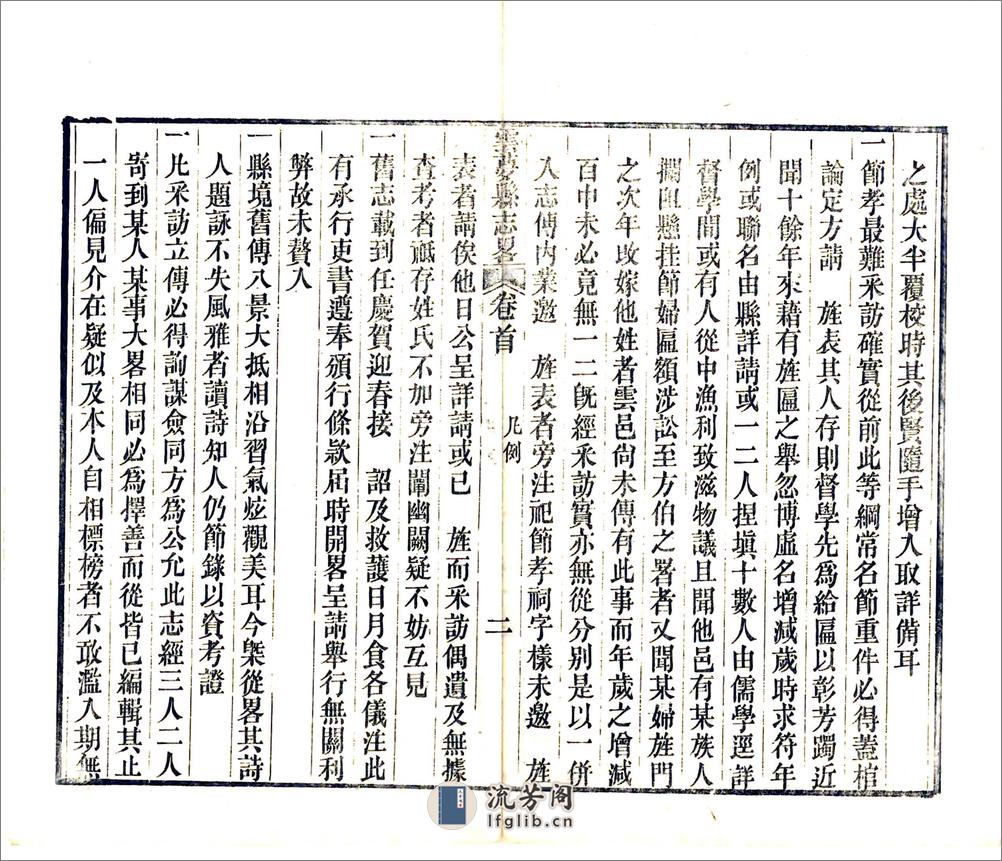 之處大半覆校時其後賢隨手增入取詳備耳
一節孝最難采訪確實從前此等綱常名節重件必得蓋棺
論定方請　旌表其人存則督學先爲給匾以彰芳躅近
聞十餘年來藉有旌匾之舉忽博虛名增減歲時求符年
例或聯名由縣詳請或一二人捏塡十數人由儒學逕詳
督學間或有人從中漁利致滋物議且聞他邑有某族人
攔阻懸挂節婦匾額涉訟至方伯之署者又聞某婦旌門
之次年改嫁他姓者雲邑尙未傳有此事而年歲之增減
百中未必竟無一二旣經采訪實亦無從分別是以一併
入志傳內業邀　旌表者旁注祀節孝祠字樣未邀　旌
雲夢縣志畧　卷首　凡例　二
表者請俟他日公呈詳請或已　旌而采訪偶遺及無據
查考者祗存姓氏不加旁注闡幽闕疑不妨互見
一舊志載到任慶賀迎春接　詔及救護日月食各儀注此
有承行吏書遵奉頒行條欵屆時開畧呈請舉行無關利
弊故未贅入
一縣境舊傳八景大抵相沿習氣炫觀美耳今槩從畧其詩
人題詠不失風雅者讀詩知人仍節錄以資考證
一凡采訪立傳必得詢謀僉同方爲公允此志經三人二人
寄到某人某事大畧相同必爲擇善而從皆已編輯其止
一人偏見介在疑似及本人自相標榜者不敢濫入期無
流芳阁
lfglib.cn